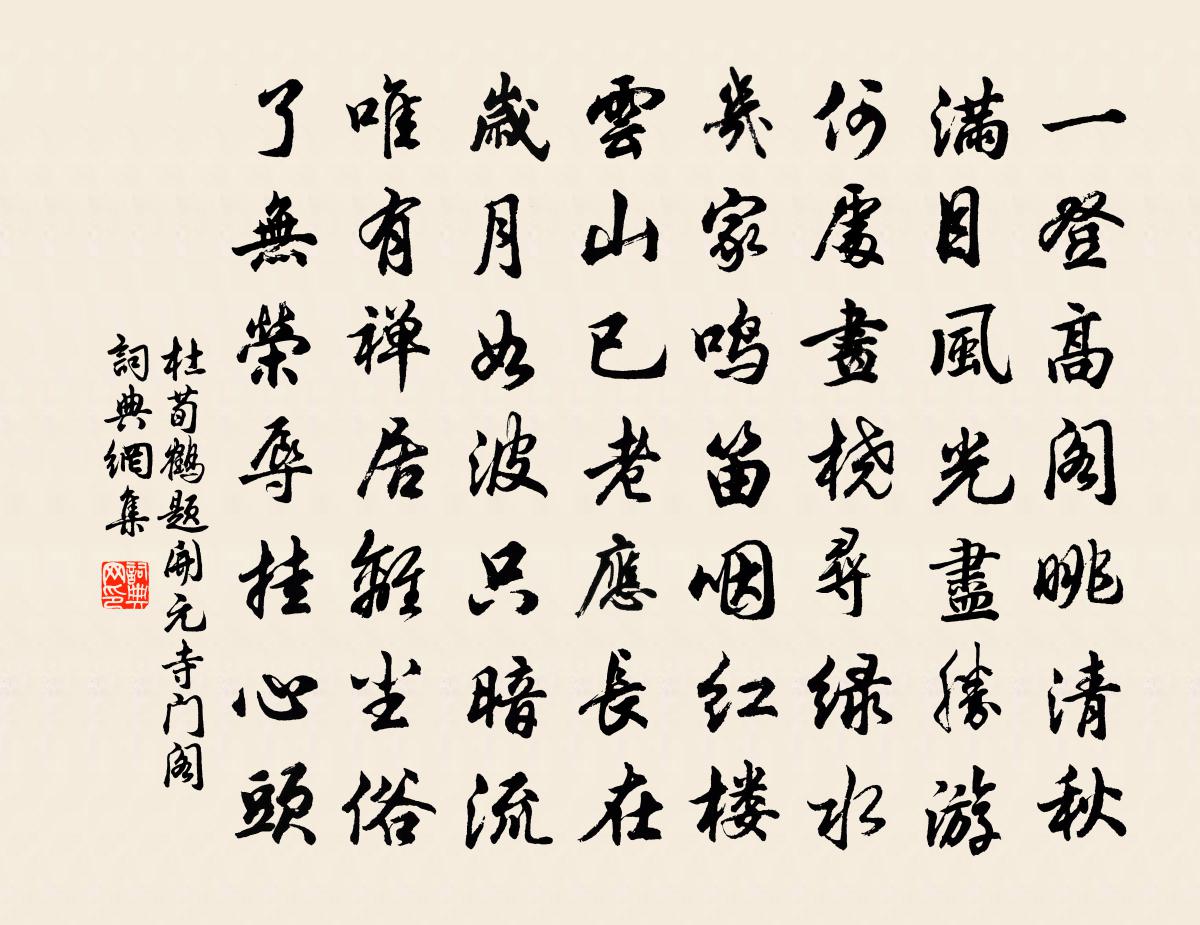 一登高阁眺清秋
滿目風光盡勝游
何處畫桡尋绿水
幾家鸣笛咽红楼
雲山已老應長在
歲月如波只暗流
唯有禅居離尘俗
了無榮辱挂心頭
杜荀鶴题開元寺门阁
詞典網集
詞典网印